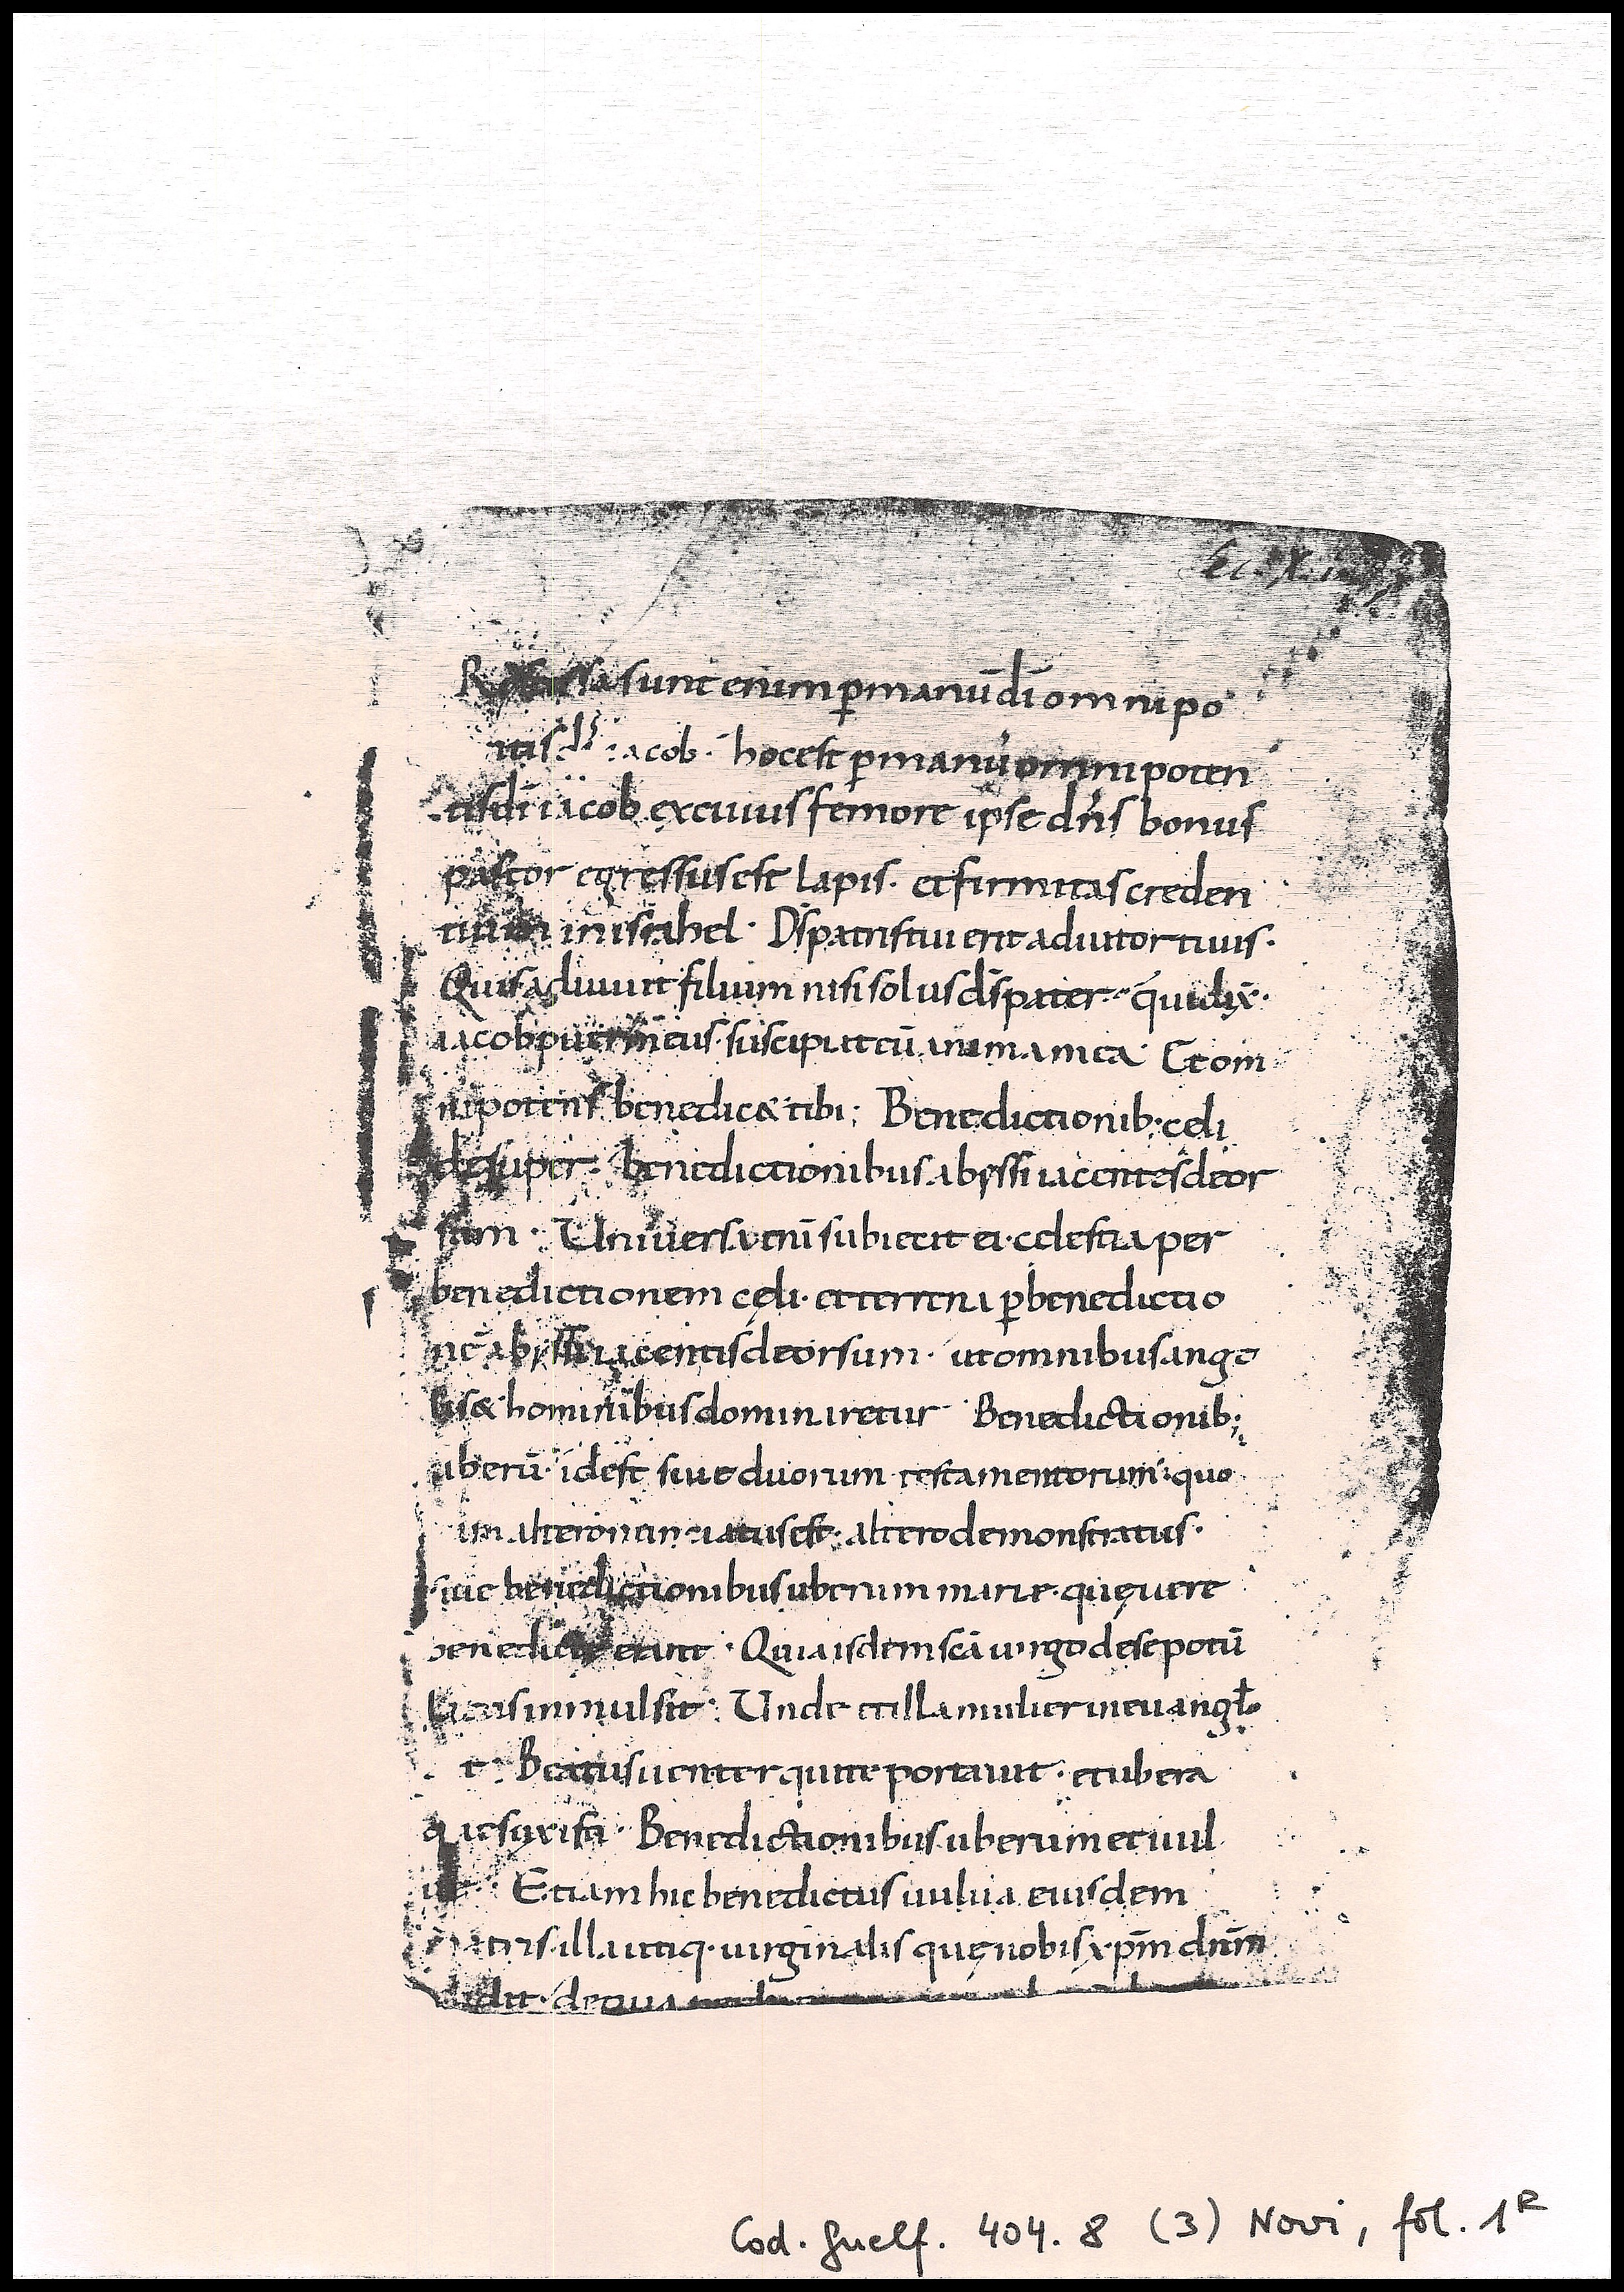 sunt enim p̄manū dī omnipo
ntis d̄s iacob · hocest p̄manū omnipoten
tisdī iacob excuius femore ipse dn̄s bonus
pastor egressusest lapis · etfirmitascreden
tium inisrahel · D̄spatristui erit adiutortuus ·
Quisadiuuit filium nisi solus d̄spater · quidix̄ ·
iacobpuermeus · suscipiateū anima mea · Et om
nipotens benedic& tibi ; Benedictionib; cęli
desuper · benedictionibus abyssi iacentesdeor
sum · Universa eni subiecit ei · celestia per
benedictionem cęli · et terrena p̄benedictio
nē abyssi iacentisdeorsum · utomnibusange
lis& hominibusdominaretur · Benedictionib;
uberū · idest siue duorum testamentorum · quo
altero nuntiatusest · altero demonstratus ·
siue benedictionibusuberum marie · quęuere
benedicta erant · Quiaisdem sc̄a uirgo desepotū
lactisinmulsit · Unde etilla mulier ineuangl̄o
t · Beatus uenter quite portauit · etubera
quesuxisti · Benedictionibus uberum etuul
ue · Etiam hic benedictus uulua eiusdem
matris · illa utiq · uirginalis quęnobis xp̄m dn̄m
dedit · dequa
Cod. Guelf. 404. 8 (3) Novi, fol. 1R